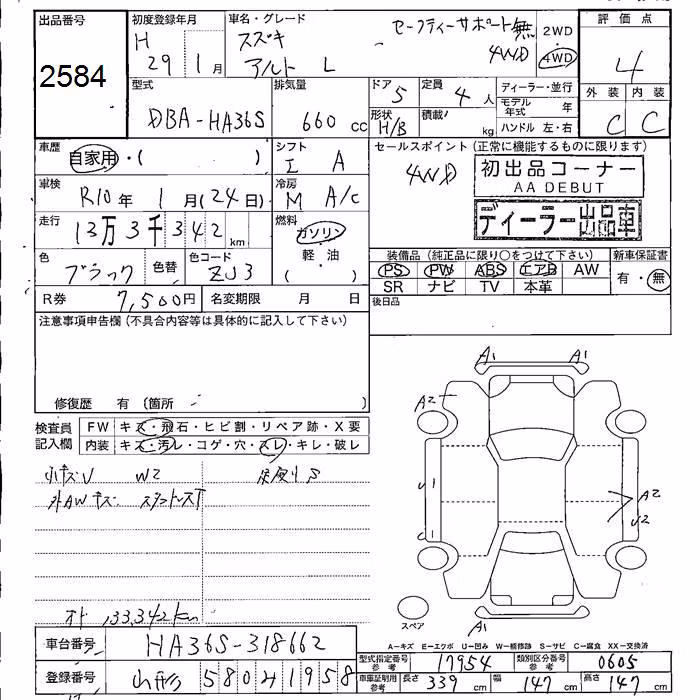 出品番号
2584
初度登録年月
H 29年 1月
車名・グレード
スズキ
アルト L
セーフティーサポート無
4WD
2WD
4WD
評価点
4
外装 内装
C C
型式
DBA-HA36S
排気量
660 cc
ドア
5
形状
H/B
定員
4人
積載
kg
ディーラー・並行
モデル年式 年
ハンドル 左・右
車歴
自家用・( )
シフト
I A
セールスポイント(正常に機能するものに限ります)
4WD
初出品コーナー
AA DEBUT
ディーラー出品車
車検
R10年 1月(24日)
冷房
M A/C
走行
13万3千342km
燃料
ガソリン
軽・油
( )
色
ブラック
色替
色コード
ZJ3
装備品(純正品に限り○をつけて下さい)
PS PW ABS エアB AW
SR ナビ TV 本革
新車保証書
有・無
R券 7,500円
名変期限 月 日
後日品
注意事項申告欄(不具合内容等は具体的に記入して下さい)
修復歴 有〔箇所 〕
検査員記入欄
FW キズ・飛石・ヒビ割・リペア跡・X要
内装 キズ・汚レ・コゲ・穴・スレ・キレ・破レ
小キズV W2
外AWキズ
オド 133342km
A1 A1
A2
A2
V1
V2
C1
A1
スペア
A-キズ E-エクボ U-凹み W-補修跡 S-サビ C-腐食 XX-交換済
車台番号
HA36S-318662
登録番号
山形 580 41958
型式指定番号 参考
17954
類別区分番号 参考
0605
車庫証明用 参考
長さ 339 cm
幅 147 cm
高さ 147 cm